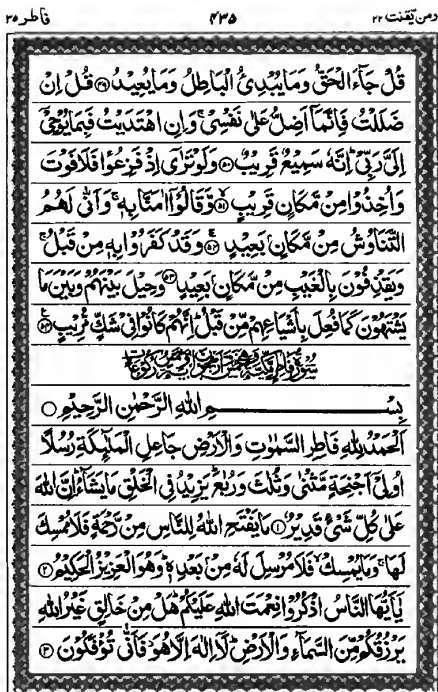 ومن يقنت ۲۲ ۴۳۵ فاطر ۳۵
قُلْ جَآءَ الْحَقُّ وَمَا يُبْدِئُ الْبَاطِلُ وَمَا يُعِيْدُ ﴿۴۹﴾ قُلْ اِنْ
ضَلَلْتُ فَاِنَّمَآ اَضِلُّ عَلٰى نَفْسِيْ ۚ وَاِنِ اهْتَدَيْتُ فَبِمَا يُوْحِيْٓ
اِلَيَّ رَبِّيْ ؕ اِنَّهٗ سَمِيْعٌ قَرِيْبٌ ﴿۵۰﴾ وَلَوْ تَرٰٓى اِذْ فَزِعُوْا فَلَا فَوْتَ
وَاُخِذُوْا مِنْ مَّكَانٍ قَرِيْبٍ ﴿۵۱﴾ وَّقَالُوْٓا اٰمَنَّا بِهٖ ۚ وَاَنّٰى لَهُمُ
التَّنَاوُشُ مِنْ مَّكَانٍۭ بَعِيْدٍ ﴿۵۲﴾ وَّقَدْ كَفَرُوْا بِهٖ مِنْ قَبْلُ ۚ
وَيَقْذِفُوْنَ بِالْغَيْبِ مِنْ مَّكَانٍۭ بَعِيْدٍ ﴿۵۳﴾ وَحِيْلَ بَيْنَهُمْ وَبَيْنَ مَا
يَشْتَهُوْنَ كَمَا فُعِلَ بِاَشْيَاعِهِمْ مِّنْ قَبْلُ ؕ اِنَّهُمْ كَانُوْا فِيْ شَكٍّ مُّرِيْبٍ ﴿۵۴﴾
بِسْمِ اللّٰهِ الرَّحْمٰنِ الرَّحِيْمِ
اَلْحَمْدُ لِلّٰهِ فَاطِرِ السَّمٰوٰتِ وَالْاَرْضِ جَاعِلِ الْمَلٰٓئِكَةِ رُسُلًا
اُولِيْٓ اَجْنِحَةٍ مَّثْنٰى وَثُلٰثَ وَرُبٰعَ ؕ يَزِيْدُ فِي الْخَلْقِ مَا يَشَآءُ ؕ اِنَّ اللّٰهَ
عَلٰى كُلِّ شَيْءٍ قَدِيْرٌ ﴿۱﴾ مَا يَفْتَحِ اللّٰهُ لِلنَّاسِ مِنْ رَّحْمَةٍ فَلَا مُمْسِكَ
لَهَا ۚ وَمَا يُمْسِكْ ۙ فَلَا مُرْسِلَ لَهٗ مِنْۢ بَعْدِهٖ ؕ وَهُوَ الْعَزِيْزُ الْحَكِيْمُ ﴿۲﴾
يٰٓاَيُّهَا النَّاسُ اذْكُرُوْا نِعْمَتَ اللّٰهِ عَلَيْكُمْ ؕ هَلْ مِنْ خَالِقٍ غَيْرُ اللّٰهِ
يَرْزُقُكُمْ مِّنَ السَّمَآءِ وَالْاَرْضِ ؕ لَآ اِلٰهَ اِلَّا هُوَ ۖ فَاَنّٰى تُؤْفَكُوْنَ ﴿۳﴾